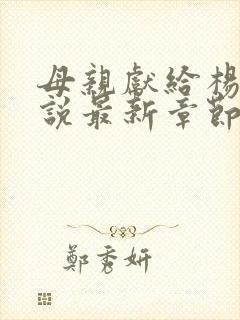 母親獻給楊
說最新章節
鄭秀妍